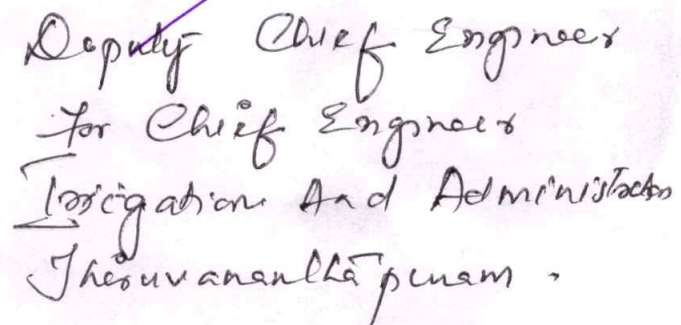 Deputy Chief Engineer
For Chief Engineer
Irrigation And Administration
Thiruvananthapuram.